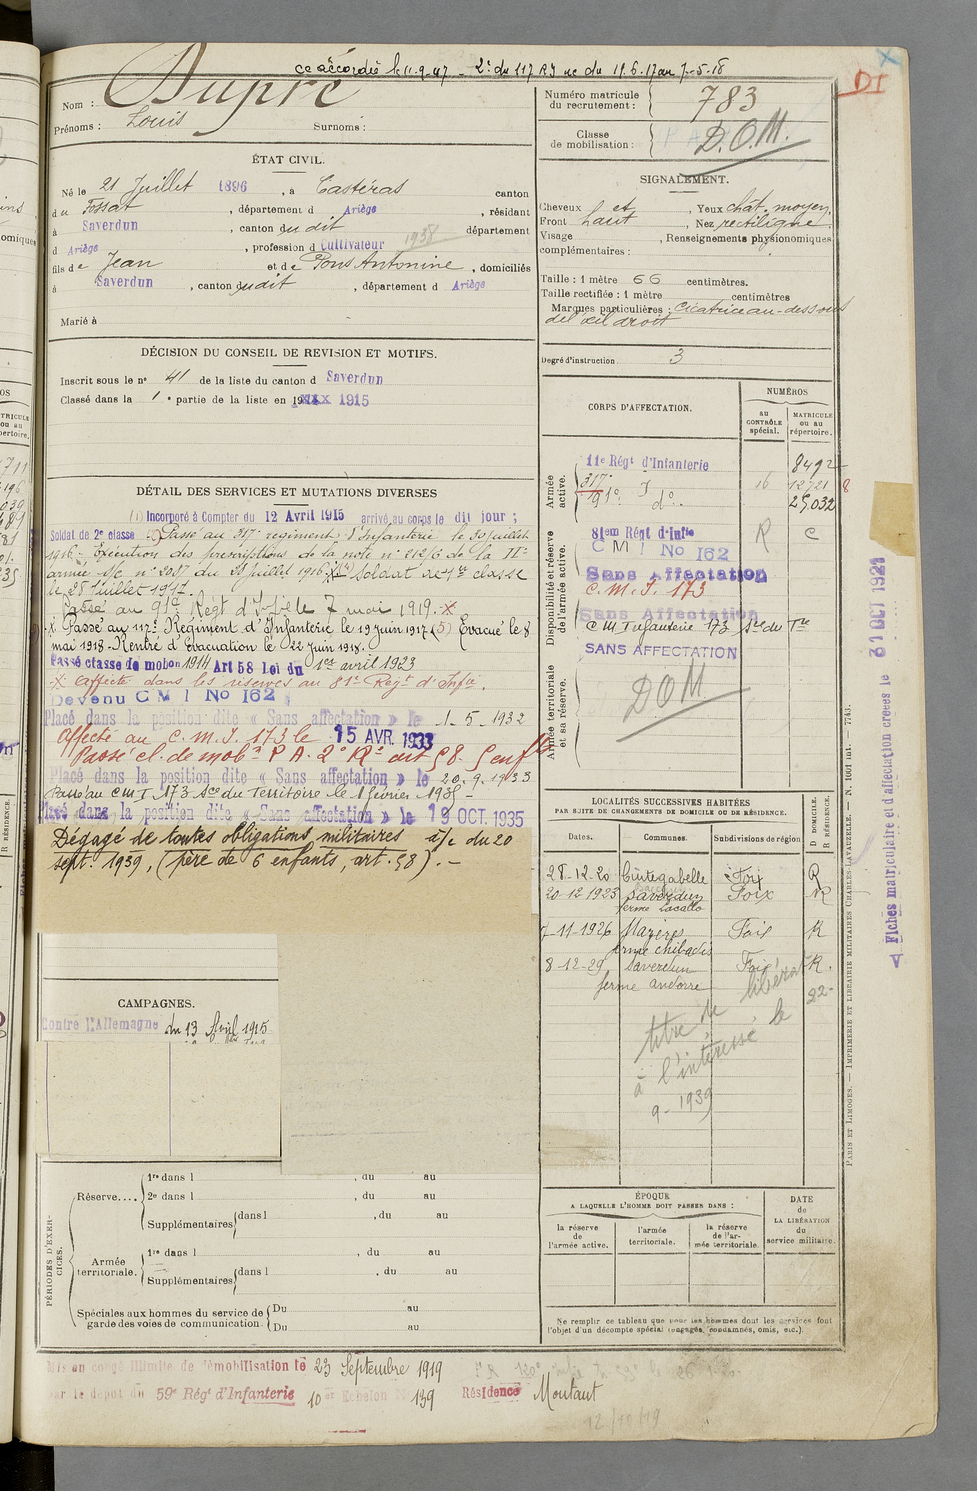 cc accordée le 11-9-47 - 2e du 117 RI ue du 19.6.17 au 7-5-18
Nom : Dupré
Prénoms : Louis Surnoms :
ÉTAT CIVIL.
Né le 21 Juillet 1896, à Castéras canton
du Fossat, département d Ariège, résidant
à Saverdun, canton dudit département
d Ariège, profession d Cultivateur 1938
fils de Jean et de Pons Antonine, domiciliés
à Saverdun, canton dudit, département d Ariège
Marié à
DÉCISION DU CONSEIL DE REVISION ET MOTIFS.
Inscrit sous le no 41 de la liste du canton d Saverdun
Classé dans la 1e partie de la liste en 1915
DÉTAIL DES SERVICES ET MUTATIONS DIVERSES
(1) Incorporé à Compter du 12 Avril 1915 arrivé au corps le dit jour ;
Soldat de 2e classe Passé au 317e régiment d'Infanterie le 30 juillet
1916 - Exécution des prescriptions de la note no 212/6 de la IIe
armée S/c no 2037 du 28 juillet 1916 Soldat de 1re classe
le 28 Juillet 1917.
Passé au 91e Régt d'Inf le 7 mai 1919. X
X. Passé au 117e Régiment d'Infanterie le 19 juin 1917 (5) Évacué le 8
mai 1918 - Rentré d'évacuation le 22 juin 1918.
Passé classe de mobon 1914 Art 58 Loi du 1er avril 1923
X Affecté dans les réserves au 81e Régt d'Infie.
Devenu C M I No 162
Placé dans la position dite « Sans affectation » le 1-5-1932
Affecté au C.M.I. 173 le 15 AVR. 1933
Passé cl. de mobon P A. 2e Re art 58. 5 enfts
Placé dans la position dite « Sans affectation » le 20.9.1933
Passé au C M I 173 Sce du Territoire le 1 février 1935 -
Placé dans la position dite « Sans affectation » le 19 OCT. 1935
Dégagé de toutes obligations militaires à/c du 20
sept. 1939, (père de 6 enfants, art. 58). -
CAMPAGNES.
Contre l'Allemagne du 13 Avril 1915
PÉRIODES D'EXERCICES.
Réserve....
1re dans l , du au
2e dans l , du au
Supplémentaires dans l , du au
Armée territoriale.
1re dans l , du au
Supplémentaires dans l , du au
Spéciales aux hommes du service de garde des voies de communication.
Du au
Du au
Mis en congé illimité de démobilisation le 23 Septembre 1919
par le dépôt du 59e Régt d'Infanterie 10e Echelon No 139 Résidence Montaut
12/10/19
Numéro matricule du recrutement : 783
DI
Classe de mobilisation : D.O.M.
SIGNALEMENT.
Cheveux et , Yeux chât. moyen
Front haut , Nez rectiligne
Visage , Renseignements physionomiques
complémentaires :
Taille : 1 mètre 66 centimètres.
Taille rectifiée : 1 mètre centimètres
Marques particulières : cicatrice au-dessous
de l'œil droit
Degré d'instruction 3
CORPS D'AFFECTATION.
NUMÉROS
au CONTRÔLE spécial.
MATRICULE ou au répertoire.
Armée active.
11e Régt d'Infanterie 8492
317e 16 12721
91e. I do. 25,032
Disponibilité et réserve de l'armée active.
81em Régt d'Infie R C
C M I No 162
Sans Affectation
C. M. I. 173
Sans Affectation
C M Infanterie 173 Sce du Tre
SANS AFFECTATION
Armée territoriale et sa réserve.
DOM
LOCALITÉS SUCCESSIVES HABITÉES
PAR SUITE DE CHANGEMENTS DE DOMICILE OU DE RÉSIDENCE.
Dates. Communes. Subdivisions de région D DOMICILE. R RÉSIDENCE.
28-12-20 Cintegabelle Foix R
20-12-1923 Saverdun Foix R
7-11-1926 Mazères Foix R
8-12-29 Saverdun Foix R.
ferme andorre
titre de libérat
à l'intéressé le 22-
9-1939
ÉPOQUE
A LAQUELLE L'HOMME DOIT PASSER DANS :
la réserve de l'armée active.
l'armée territoriale.
la réserve de l'armée territoriale.
DATE de LA LIBÉRATION du service militaire.
Ne remplir ce tableau que pour les hommes dont les services font
l'objet d'un décompte spécial (engagés, condamnés, omis, etc.).
PARIS ET LIMOGES. — IMPRIMERIE ET LIBRAIRIE MILITAIRES CHARLES-LAVAUZELLE. — N. 1001 int. — 7743.
Fiches matriculaire et d'affectation créées le 31 OCT 1921